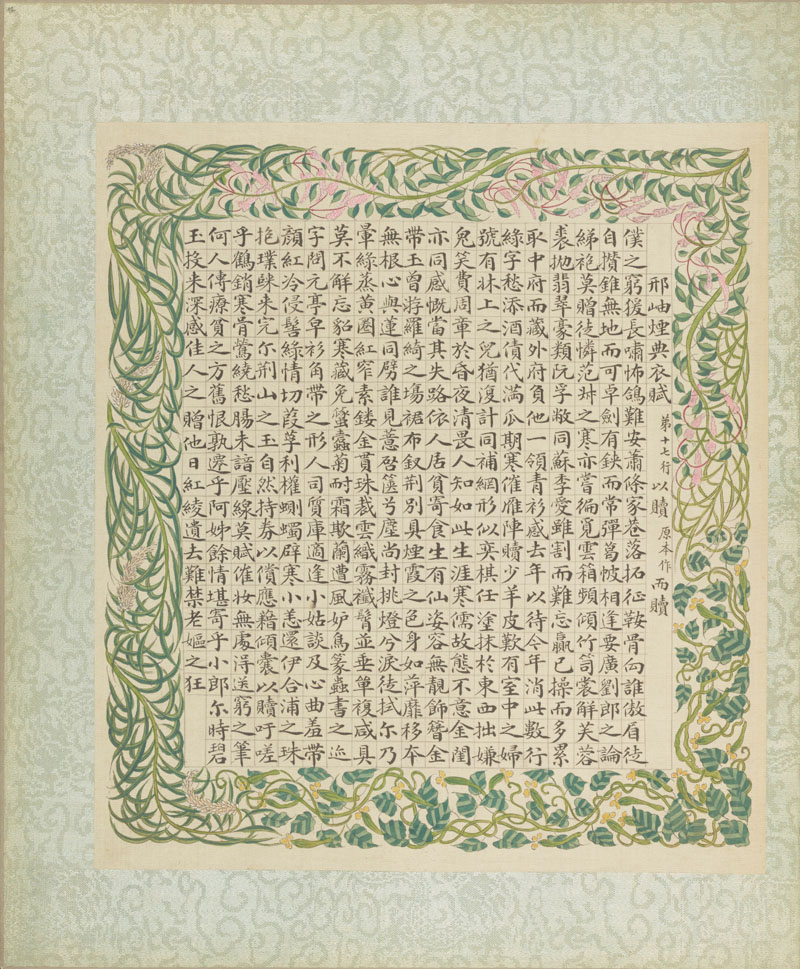 邢岫煙典衣賦 第十七行 以贖 原本作 而贖
僕之窮猨長嘯怖鴿難安蕭條家巷落拓征鞍骨向誰傲眉徒
自攢錐無地而可卓劍有鋏而常彈葛帔相逢要廣劉郎之論
綈袍莫贈徒憐范叔之寒亦嘗徧覓雲箱頻傾竹笥裳解芙蓉
裘拋翡翠豪類阮孚敝同蘇季愛雖割而難忘贏已操而多累
取中府而藏外府負他一領青衫感去年以待今年消此數行
綠字愁添酒債代滿瓜期寒催雁陣贖少羊皮歎有室中之婦
號有牀上之兒猶復計同補網形似弈棋任塗抹於東西拙嫌
兔笑費周章於昏夜清畏人知如此生涯寒儒故態不意金閨
亦同感慨當其失路依人居貧寄食生有仙姿容無靚飾簪金
帶玉曾將羅綺之場裙布釵荊別具煙霞之色身如萍靡移本
無根心與蓮同劈誰見薏啓篋兮塵尚封挑燈兮淚徒拭尔乃
暈綠蒸黃圈紅窄素鏤金貫珠裁雲織霧襳髾並垂單複咸具
莫不解忘貂寒藏免蠹菊耐霜欺蘭遭風妒鳥篆蟲書之迹
字閱元亭皁衫角帶之形人司質庫適逢小姑談及心曲羞帶
顏紅冷侵髩綠情切葭莩利權蝸蠋辟寒小恙還伊合浦之珠
抱璞縣來完尔荊山之玉自然持券以償應藉傾囊以贖吁嗟
乎鶴銷寒骨鶯繞愁腸未諳壓線莫賦催妝無處得送窮之筆
何人傳療貧之方舊恨孰遷乎阿姊餘情堪寄乎小郎尔時碧
玉投來深感佳人之贈他日紅綾遺去難禁老嫗之狂